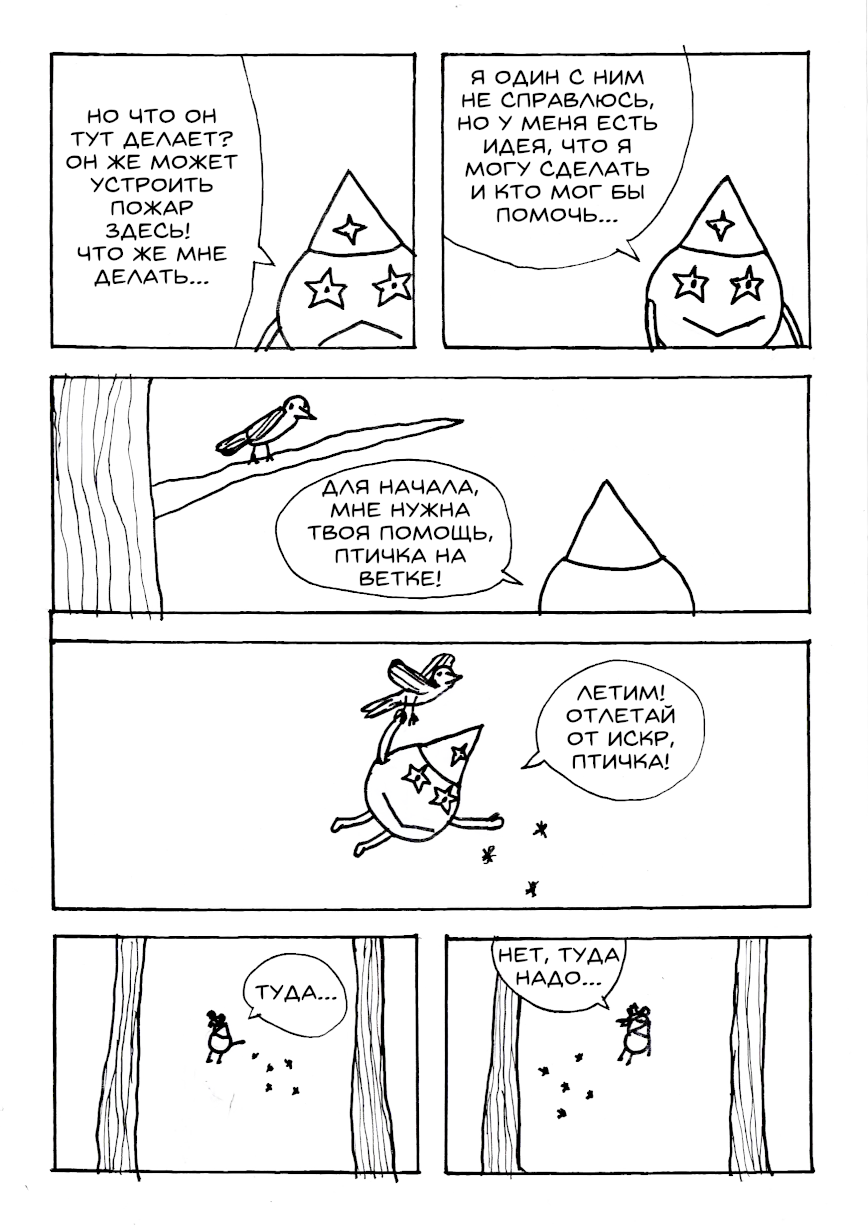 НО ЧТО ОН
ТУТ ДЕЛАЕТ?
ОН ЖЕ МОЖЕТ
УСТРОИТЬ
ПОЖАР
ЗДЕСЬ!
ЧТО ЖЕ МНЕ
ДЕЛАТЬ...
Я ОДИН С НИМ
НЕ СПРАВЛЮСЬ,
НО У МЕНЯ ЕСТЬ
ИДЕЯ, ЧТО Я
МОГУ СДЕЛАТЬ
И КТО МОГ БЫ
ПОМОЧЬ...
ДЛЯ НАЧАЛА,
МНЕ НУЖНА
ТВОЯ ПОМОЩЬ,
ПТИЧКА НА
ВЕТКЕ!
ЛЕТИМ!
ОТЛЕТАЙ
ОТ ИСКР,
ПТИЧКА!
ТУДА...
НЕТ, ТУДА
НАДО...